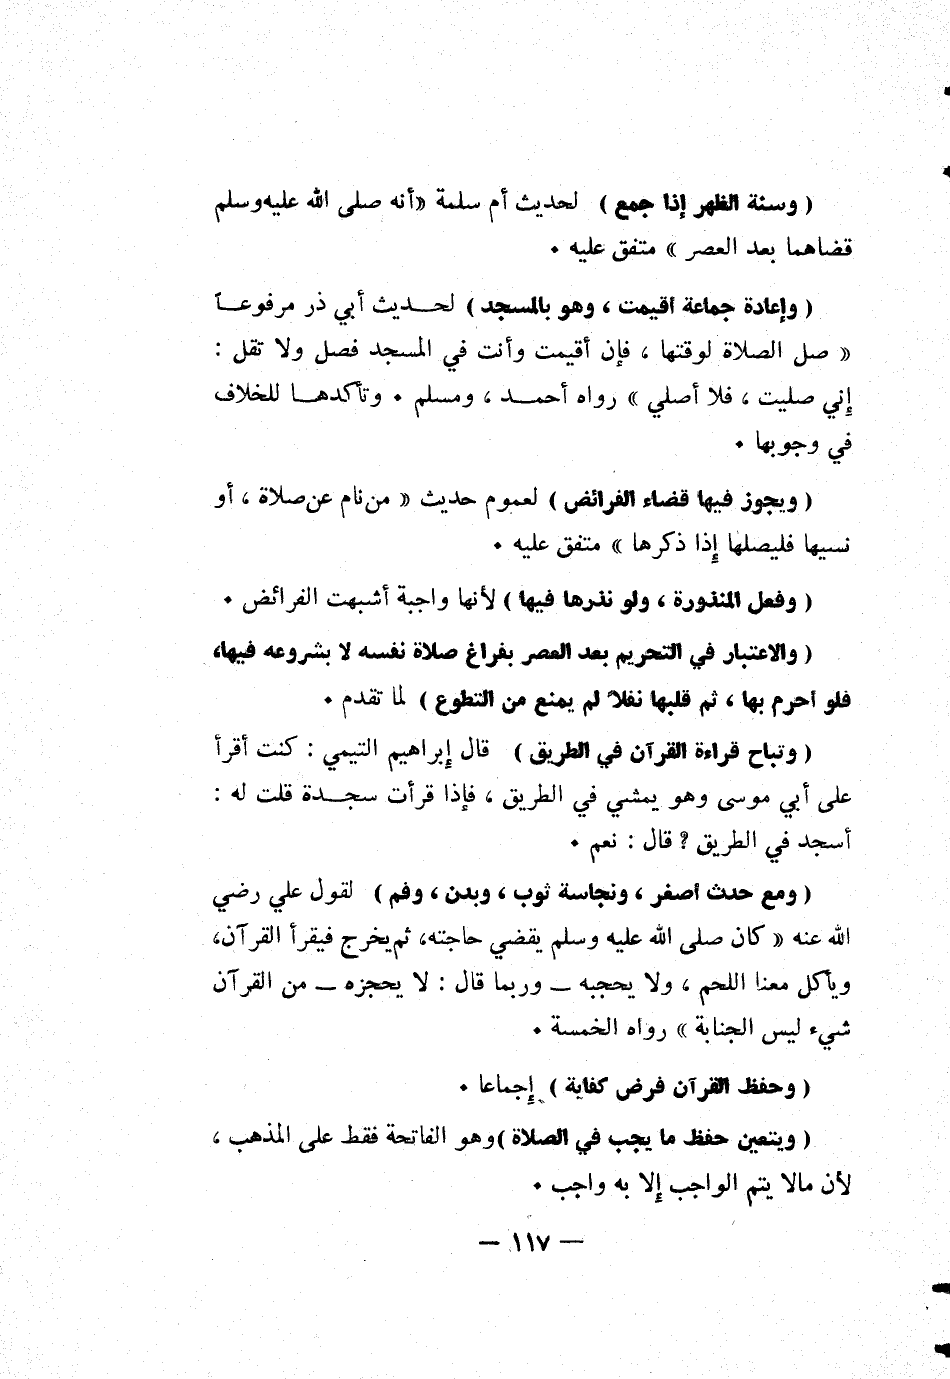 ( وسنة الظهر إذا جمع ) لحديث أم سلمة «أنه صلى الله عليه وسلم
قضاهما بعد العصر » متفق عليه .
( وإعادة جماعة أقيمت ، وهو بالمسجد ) لحـــديث أبي ذر مرفوعــاً
« صل الصلاة لوقتها ، فإن أقيمت وأنت في المسجد فصل ولا تقل :
إني صليت ، فلا أصلي » رواه أحمـــد ، ومسلم . وتأكدهـــا للخلاف
في وجوبها .
( ويجوز فيها قضاء الفرائض ) لعموم حديث « من نام عن صلاة ، أو
نسيها فليصلها إذا ذكرها » متفق عليه .
( وفعل المنذورة ، ولو نذرها فيها ) لأنها واجبة أشبهت الفرائض .
( والاعتبار في التحريم بعد العصر بفراغ صلاة نفسه لا بشروعه فيها،
فلو أحرم بها ، ثم قلبها نفلاً لم يمنع من التطوع ) لما تقدم .
( وتباح قراءة القرآن في الطريق ) قال إبراهيم التيمي : كنت أقرأ
على أبي موسى وهو يمشي في الطريق ، فإذا قرأت سجـــدة قلت له :
أسجد في الطريق ? قال : نعم .
( ومع حدث أصغر ، ونجاسة ثوب ، وبدن ، وفم ) لقول علي رضي
الله عنه « كان صلى الله عليه وسلم يقضي حاجته، ثم يخرج فيقرأ القرآن،
ويأكل معنا اللحم ، ولا يحجبه — وربما قال : لا يحجزه — من القرآن
شيء ليس الجنابة » رواه الخمسة .
( وحفظ القرآن فرض كفاية ) إجماعا .
( ويتعين حفظ ما يجب في الصلاة )وهو الفاتحة فقط على المذهب ،
لأن مالا يتم الواجب إلا به واجب .
— ١١٧ —